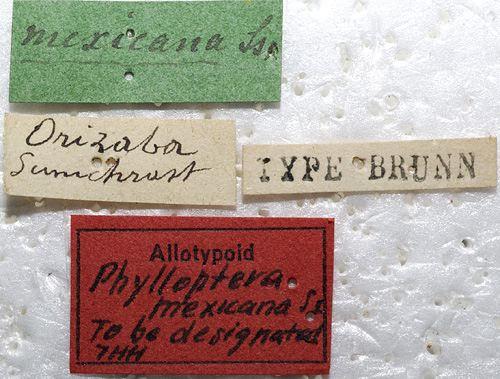 mexicana Ss.
Orizaba
Sumichrast
TYPE BRUNN
Allotypoid
Phylloptera
mexicana Ss
To be designated